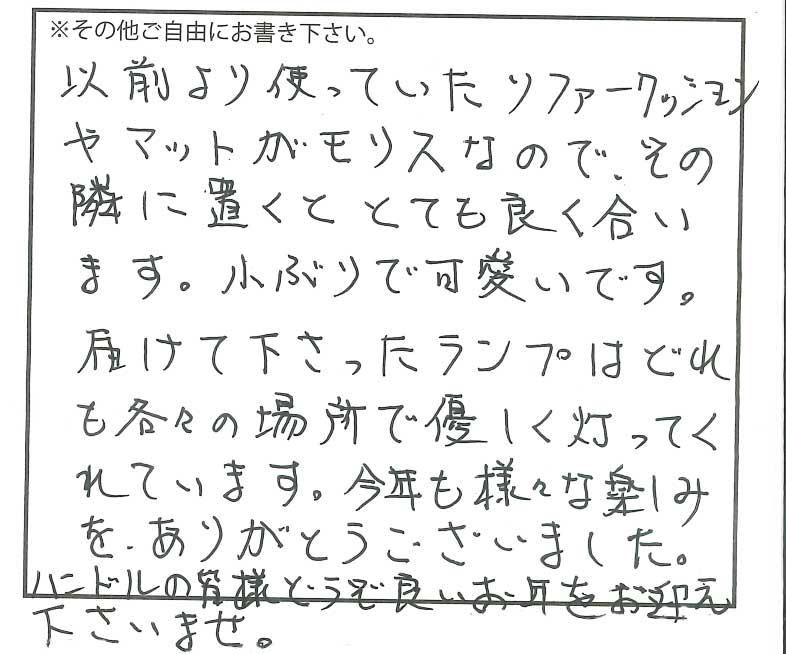 ※その他ご自由にお書き下さい。
以前より使っていたソファークッション
やマットがモリスなので、その
隣に置くととても良く合い
ます。小ぶりで可愛いです。
届けて下さったランプはどれ
も各々の場所で優しく灯ってく
れています。今年も様々な楽しみ
を、ありがとうございました。
ハンドルの皆様どうぞ良いお年をお迎え
下さいませ。